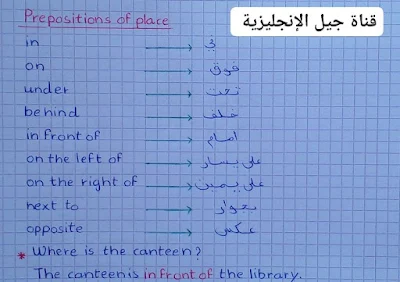 Prepositions of place
قناة جيل الإنجليزية
in → في
on → فوق
under → تحت
behind → خلف
in front of → امام
on the left of → على يسار
on the right of → على يمين
next to → بجوار
opposite → عكس
* Where is the canteen?
The canteen is in front of the library.